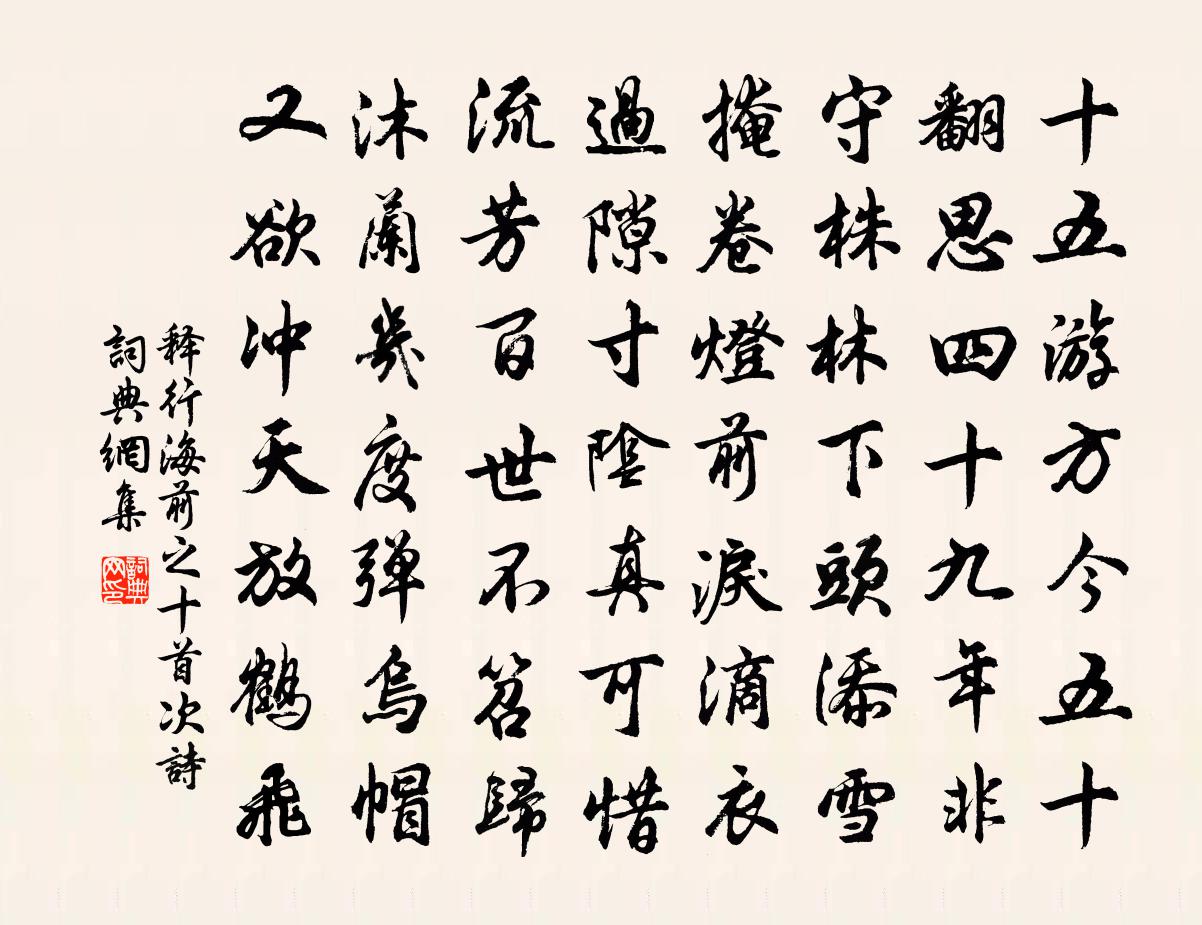 十五游方今五十
翻思四十九年非
守株林下頭添雪
掩卷燈前淚滴衣
過隙寸陰真可惜
流芳百世不召歸
沐蘭幾度彈烏帽
又欲冲天放鶴飛
释行海前之十首次詩
詞典網集
詞典网印